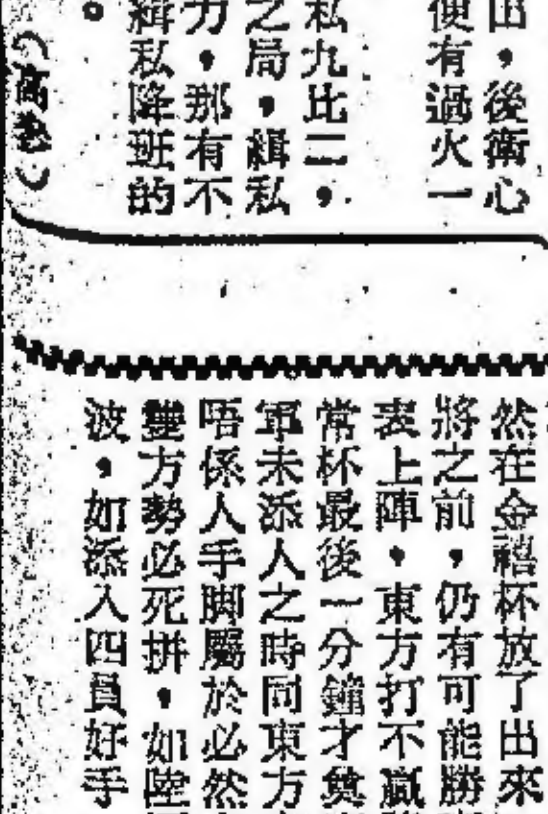 出，後衛心
便有過火一
私九比二，
之局，緝私
力，那有不
緝私降班的
。
然在金禧杯放了出來
將之前，仍有可能勝
表上陣，東方打不贏
常杯最後一分鐘才
軍未添人之時同東方
唔係人手脚屬於必然
雙方勢必死拼，如陸
波，如添入四員好手